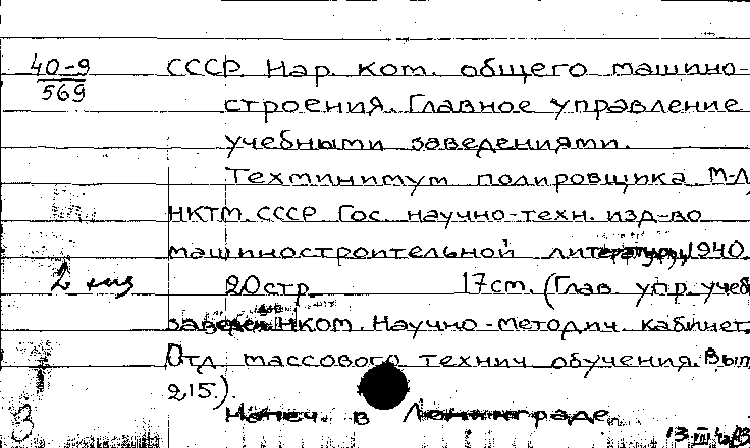 40-9
569
СССР. Нар. ком. общего машино-
строения. Главное управление
учебными заведениями.
Техминимум полировщика М-Л,
НКТМ. СССР. Гос. научно-техн. изд-во
машиностроительной литературы, 1940.
20 стр 17 ст. (Глав. упр. учеб
заведен. НКОМ. Научно-методич. кабинет.
Отд массового технич обучения. Вып
215).
Напеч. в Ленинграде
2
3
13 III